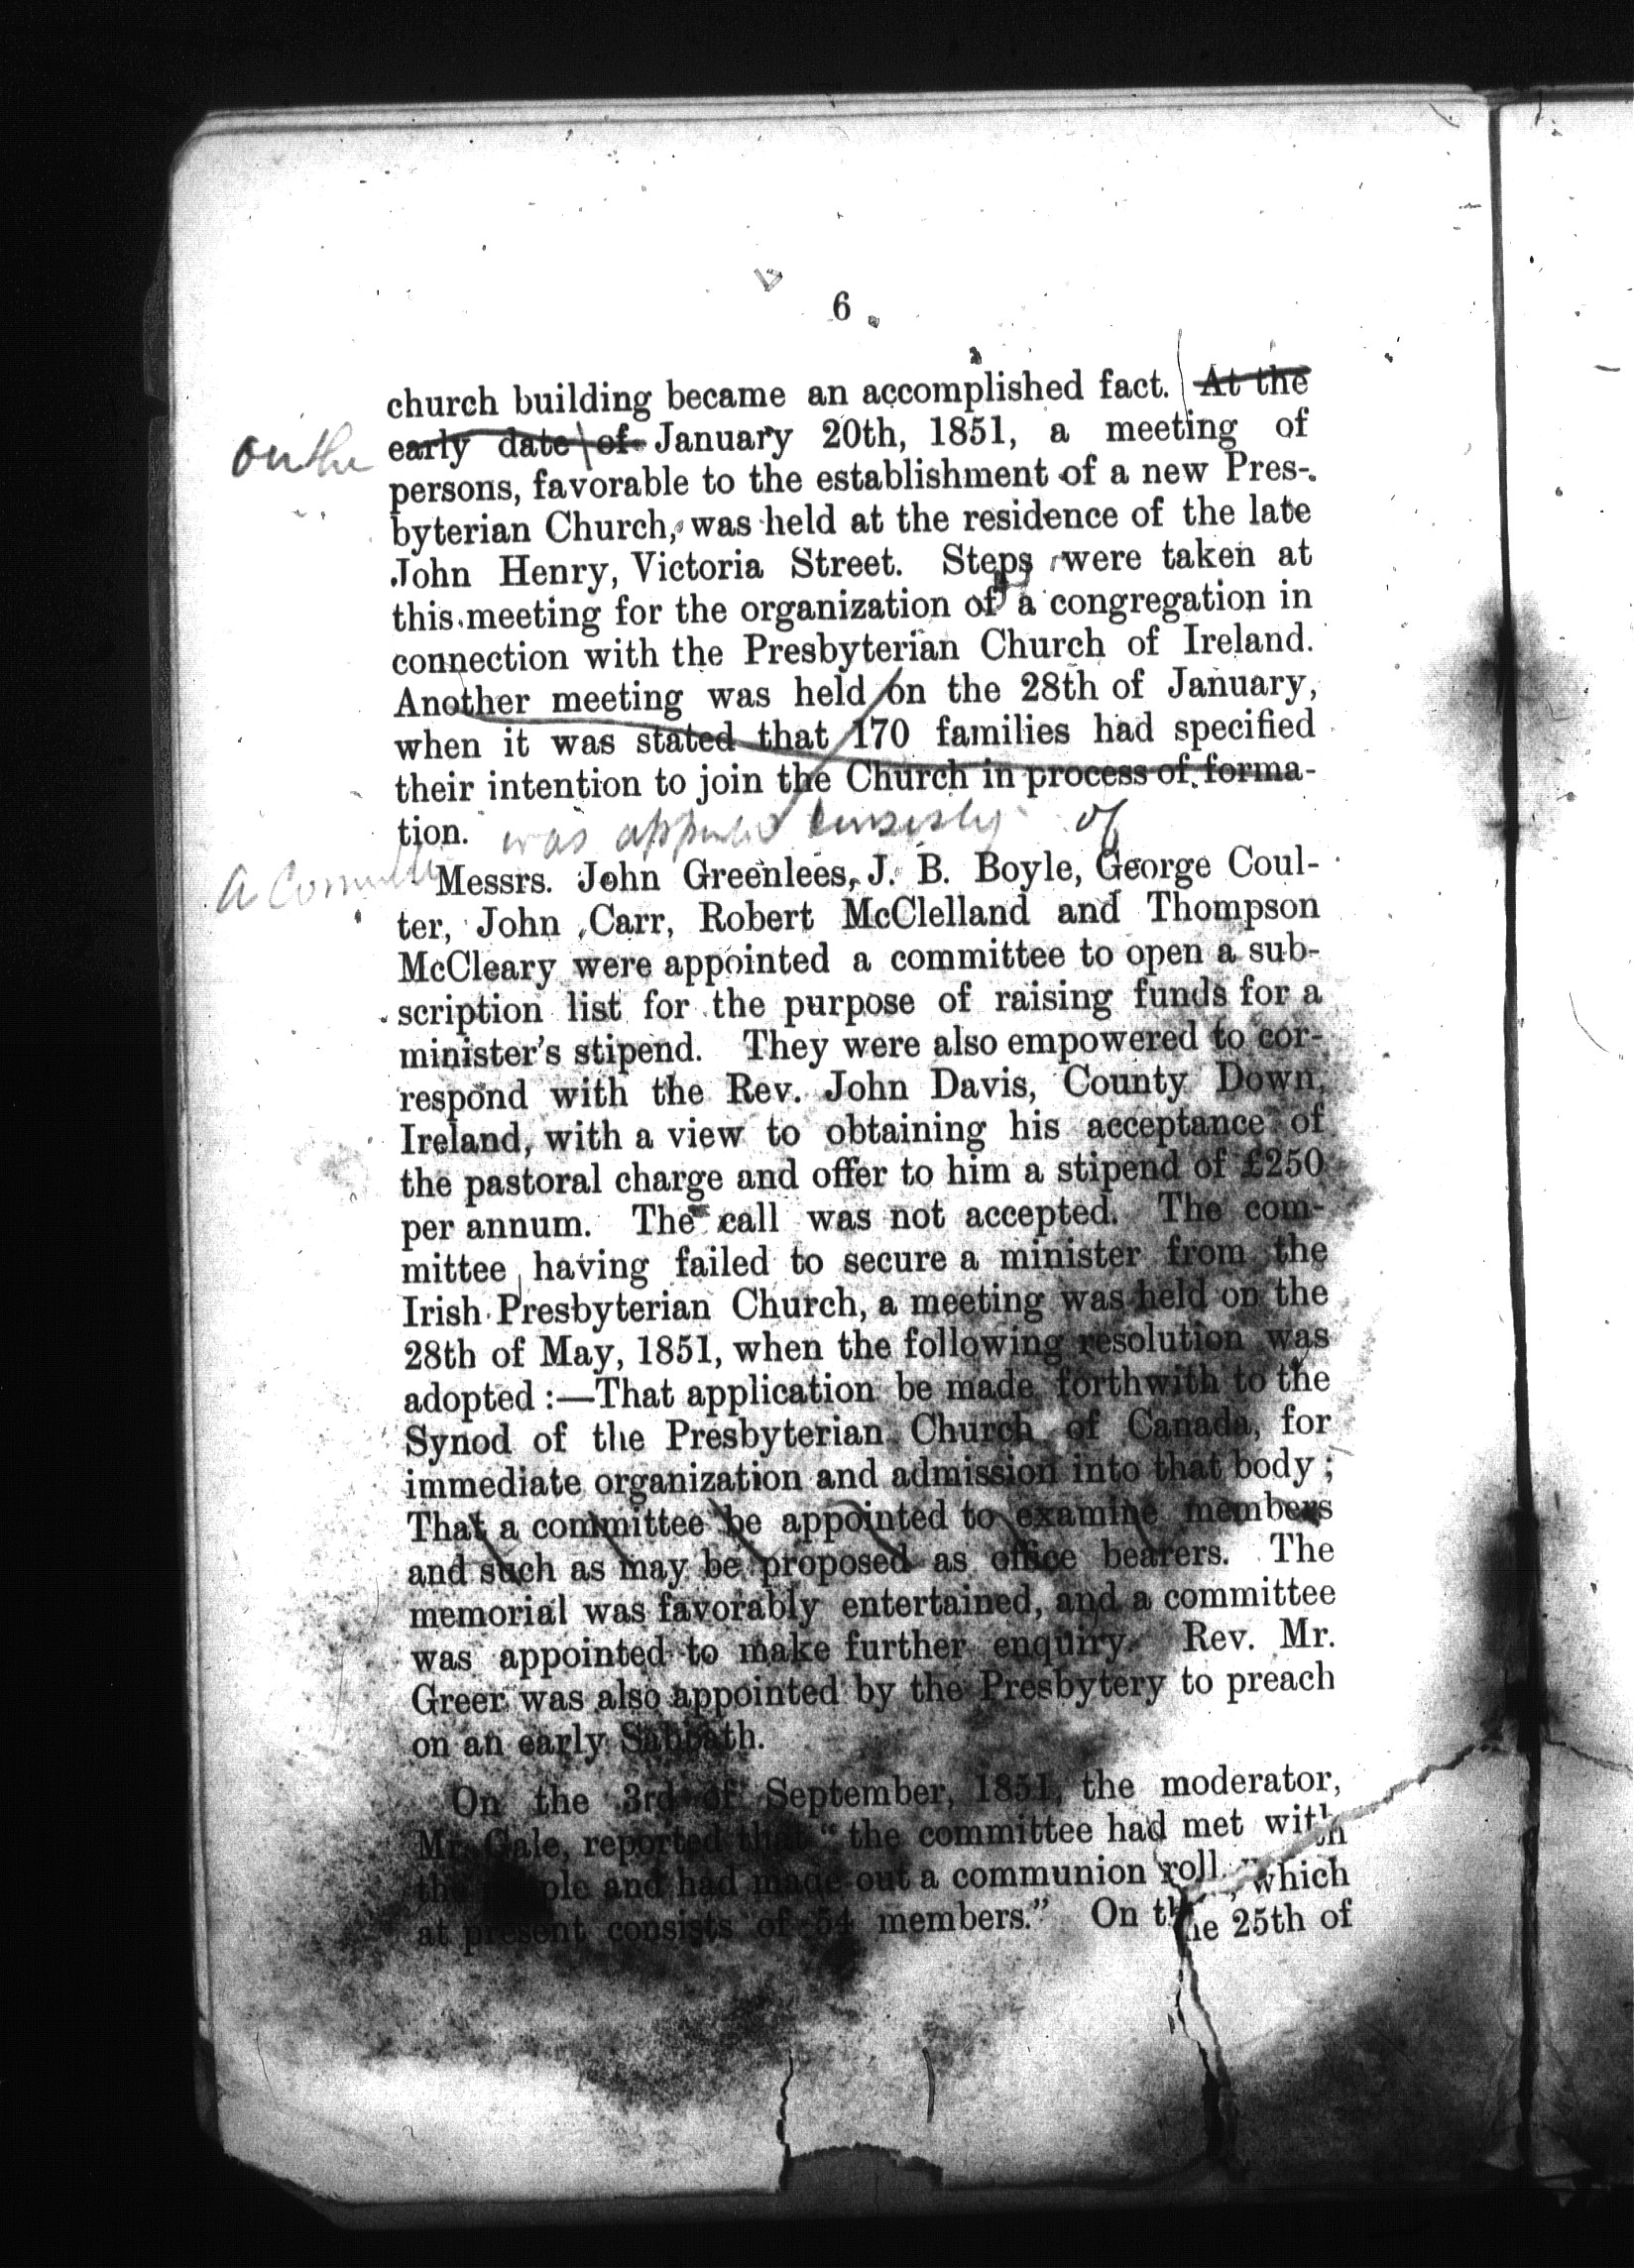 6
church building became an accomplished fact. At the
on the early date of January 20th, 1851, a meeting of
persons, favorable to the establishment of a new Pres-
byterian Church, was held at the residence of the late
John Henry, Victoria Street. Steps were taken at
this meeting for the organization of a congregation in
connection with the Presbyterian Church of Ireland.
Another meeting was held on the 28th of January,
when it was stated that 170 families had specified
their intention to join the Church in process of forma-
tion. was of
a Messrs. John Greenlees, J. B. Boyle, George Coul-
ter, John Carr, Robert McClelland and Thompson
McCleary were appointed a committee to open a sub-
scription list for the purpose of raising funds for a
minister's stipend. They were also empowered to cor-
respond with the Rev. John Davis, County Down,
Ireland, with a view to obtaining his acceptance of
the pastoral charge and offer to him a stipend of £250
per annum. The call was not accepted. The com-
mittee having failed to secure a minister from the
Irish Presbyterian Church, a meeting was held on the
28th of May, 1851, when the following resolution was
adopted :—That application be made forthwith to the
Synod of the Presbyterian Church of Canada, for
immediate organization and admission into that body ;
That a committee be appointed to examine members
and such as may be proposed as office bearers. The
memorial was favorably entertained, and a committee
was appointed to make further enquiry. Rev. Mr.
Greer was also appointed by the Presbytery to preach
on an early Sabbath.
On the 3rd of September, 1851, the moderator,
Mr. Gale, reported that "the committee had met with
the people and had made out a communion roll, which
at present consists of 54 members." On the 25th of